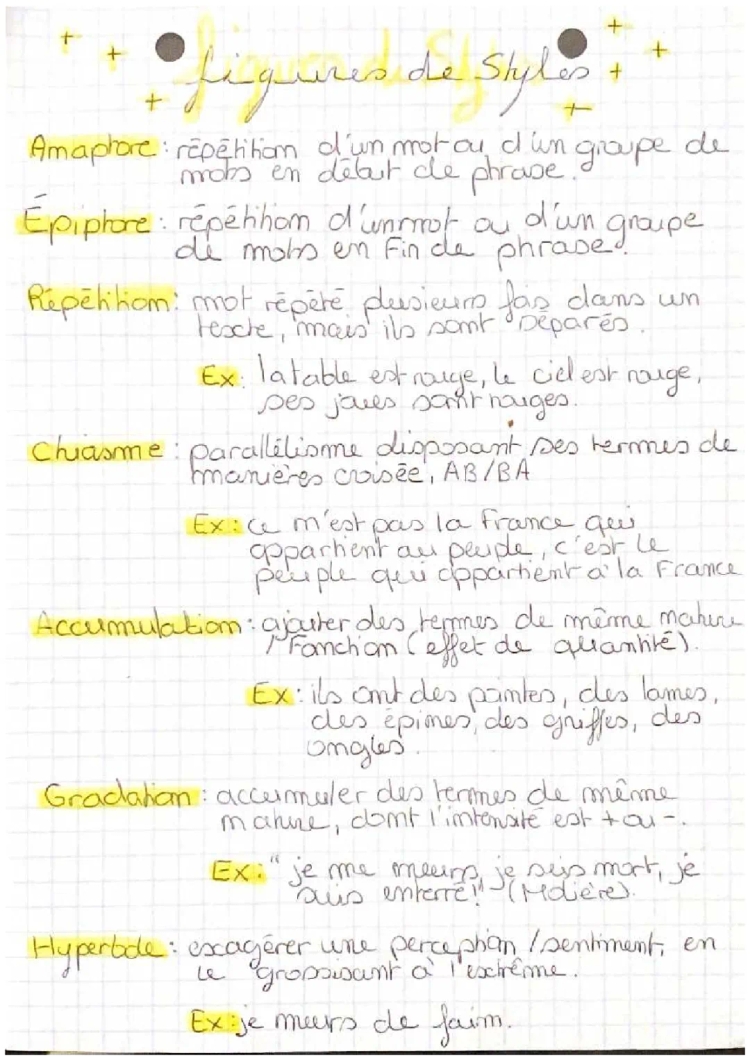 figures de Styles
Anaphore : répétition d'un mot ou d'un groupe de
mots en début de phrase.
Épiphore : répétition d'un mot ou d'un groupe
de mots en fin de phrase.
Répétition : mot répété plusieurs fois dans un
texte, mais ils sont séparés.
Ex : la table est rouge, le ciel est rouge,
ses joues sont rouges.
Chiasme : parallélisme disposant ses termes de
manières croisée, AB/BA
Ex : ce n'est pas la France qui
appartient au peuple, c'est le
peuple qui appartient à la France
Accumulation : ajouter des termes de même nature
/ Fonction (effet de quantité).
Ex : ils ont des pointes, des lames,
des épines, des griffes, des
ongles.
Gradation : accumuler des termes de même
nature, dont l'intensité est + ou -.
Ex : "je me meurs, je suis mort, je
suis enterré!" (Molière).
Hyperbole : exagérer une perception / sentiment, en
le grossissant à l'extrême.
Ex : je meurs de faim.